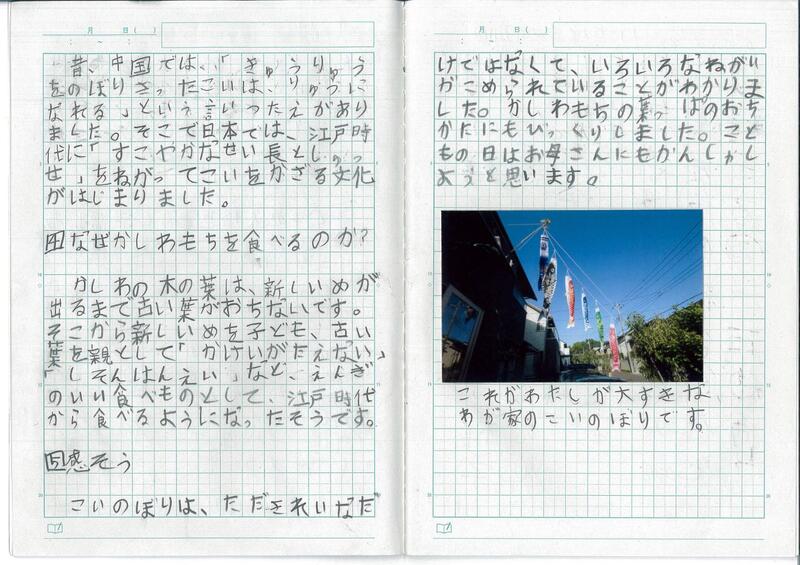 月 日( )
: ~ :
昔、中国では、「きゅうりゅう
をのぼりきったこいは、りゅうに
なれる」という言いつたえがあり
ました。そこで日本では、江戸時
代に「すこやかなせい長としゅっ
せ」をねがってこいをかざる文化
がはじまりました。
4なぜかしわもちを食べるのか?
かしわの木の葉は、新しいめが
出るまで古い葉がおちないです。
そこから新しいめを子ども、古い
葉を親として「かけいがたえない」
「しそんはんえい」など、えんぎ
のいい食べものとして、江戸時代
から食べるようになったそうです。
5感そう
こいのぼりは、ただきれいなだ
月 日( )
: ~ :
けではなくて、いろいろなねがい
がこめられていることがわかりま
した。かしわもちの葉っぱのおち
かたにもびっくりしました。こど
もの日はお母さんにもかんしゃし
ようと思います。
これがわたしが大すきな
わが家のこいのぼりです。